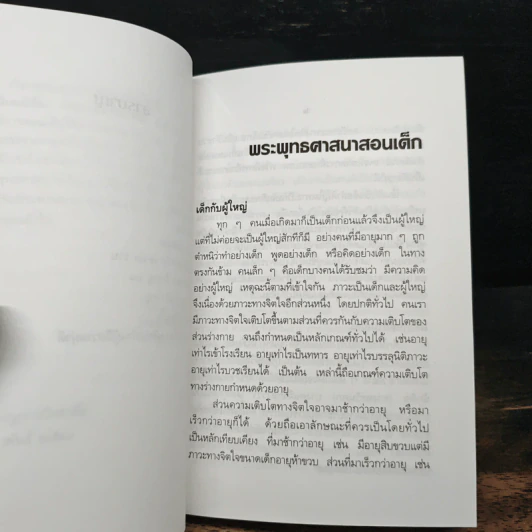 พระพุทธศาสนาสอนเด็ก
เด็กกับผู้ใหญ่
ทุก ๆ คนเมื่อเกิดมาก็เป็นเด็กก่อนแล้วจึงเป็นผู้ใหญ่
แต่ที่ไม่ค่อยจะเป็นผู้ใหญ่สักทีก็มี อย่างคนที่มีอายุมาก ๆ ถูก
ตำหนิว่าทำอย่างเด็ก พูดอย่างเด็ก หรือคิดอย่างเด็ก ในทาง
ตรงกันข้าม คนเล็ก ๆ คือเด็กบางคนได้รับชมว่า มีความคิด
อย่างผู้ใหญ่ เหตุฉะนี้ตามที่เข้าใจกัน ภาวะเป็นเด็กและผู้ใหญ่
จึงเนื่องด้วยภาวะทางจิตใจอีกส่วนหนึ่ง โดยปกติทั่วไป คนเรา
มีภาวะทางจิตใจเติบโตขึ้นตามส่วนที่ควรกันกับความเติบโตของ
ส่วนร่างกาย จนถึงกำหนดเป็นหลักเกณฑ์ทั่วไปได้ เช่นอายุ
เท่าไรเข้าโรงเรียน อายุเท่าไรเป็นทหาร อายุเท่าไรบรรลุนิติภาวะ
อายุเท่าไรบวชเรียนได้ เป็นต้น เหล่านี้ถือเกณฑ์ความเติบโต
ทางร่างกายกำหนดด้วยอายุ
ส่วนความเติบโตทางจิตใจอาจมาช้ากว่าอายุ หรือมา
เร็วกว่าอายุก็ได้ ด้วยถือเอาลักษณะที่ควรเป็นโดยทั่วไป
เป็นหลักเทียบเคียง ที่มาช้ากว่าอายุ เช่น มีอายุสิบขวบแต่มี
ภาวะทางจิตใจขนาดเด็กอายุห้าขวบ ส่วนที่มาเร็วกว่าอายุ เช่น